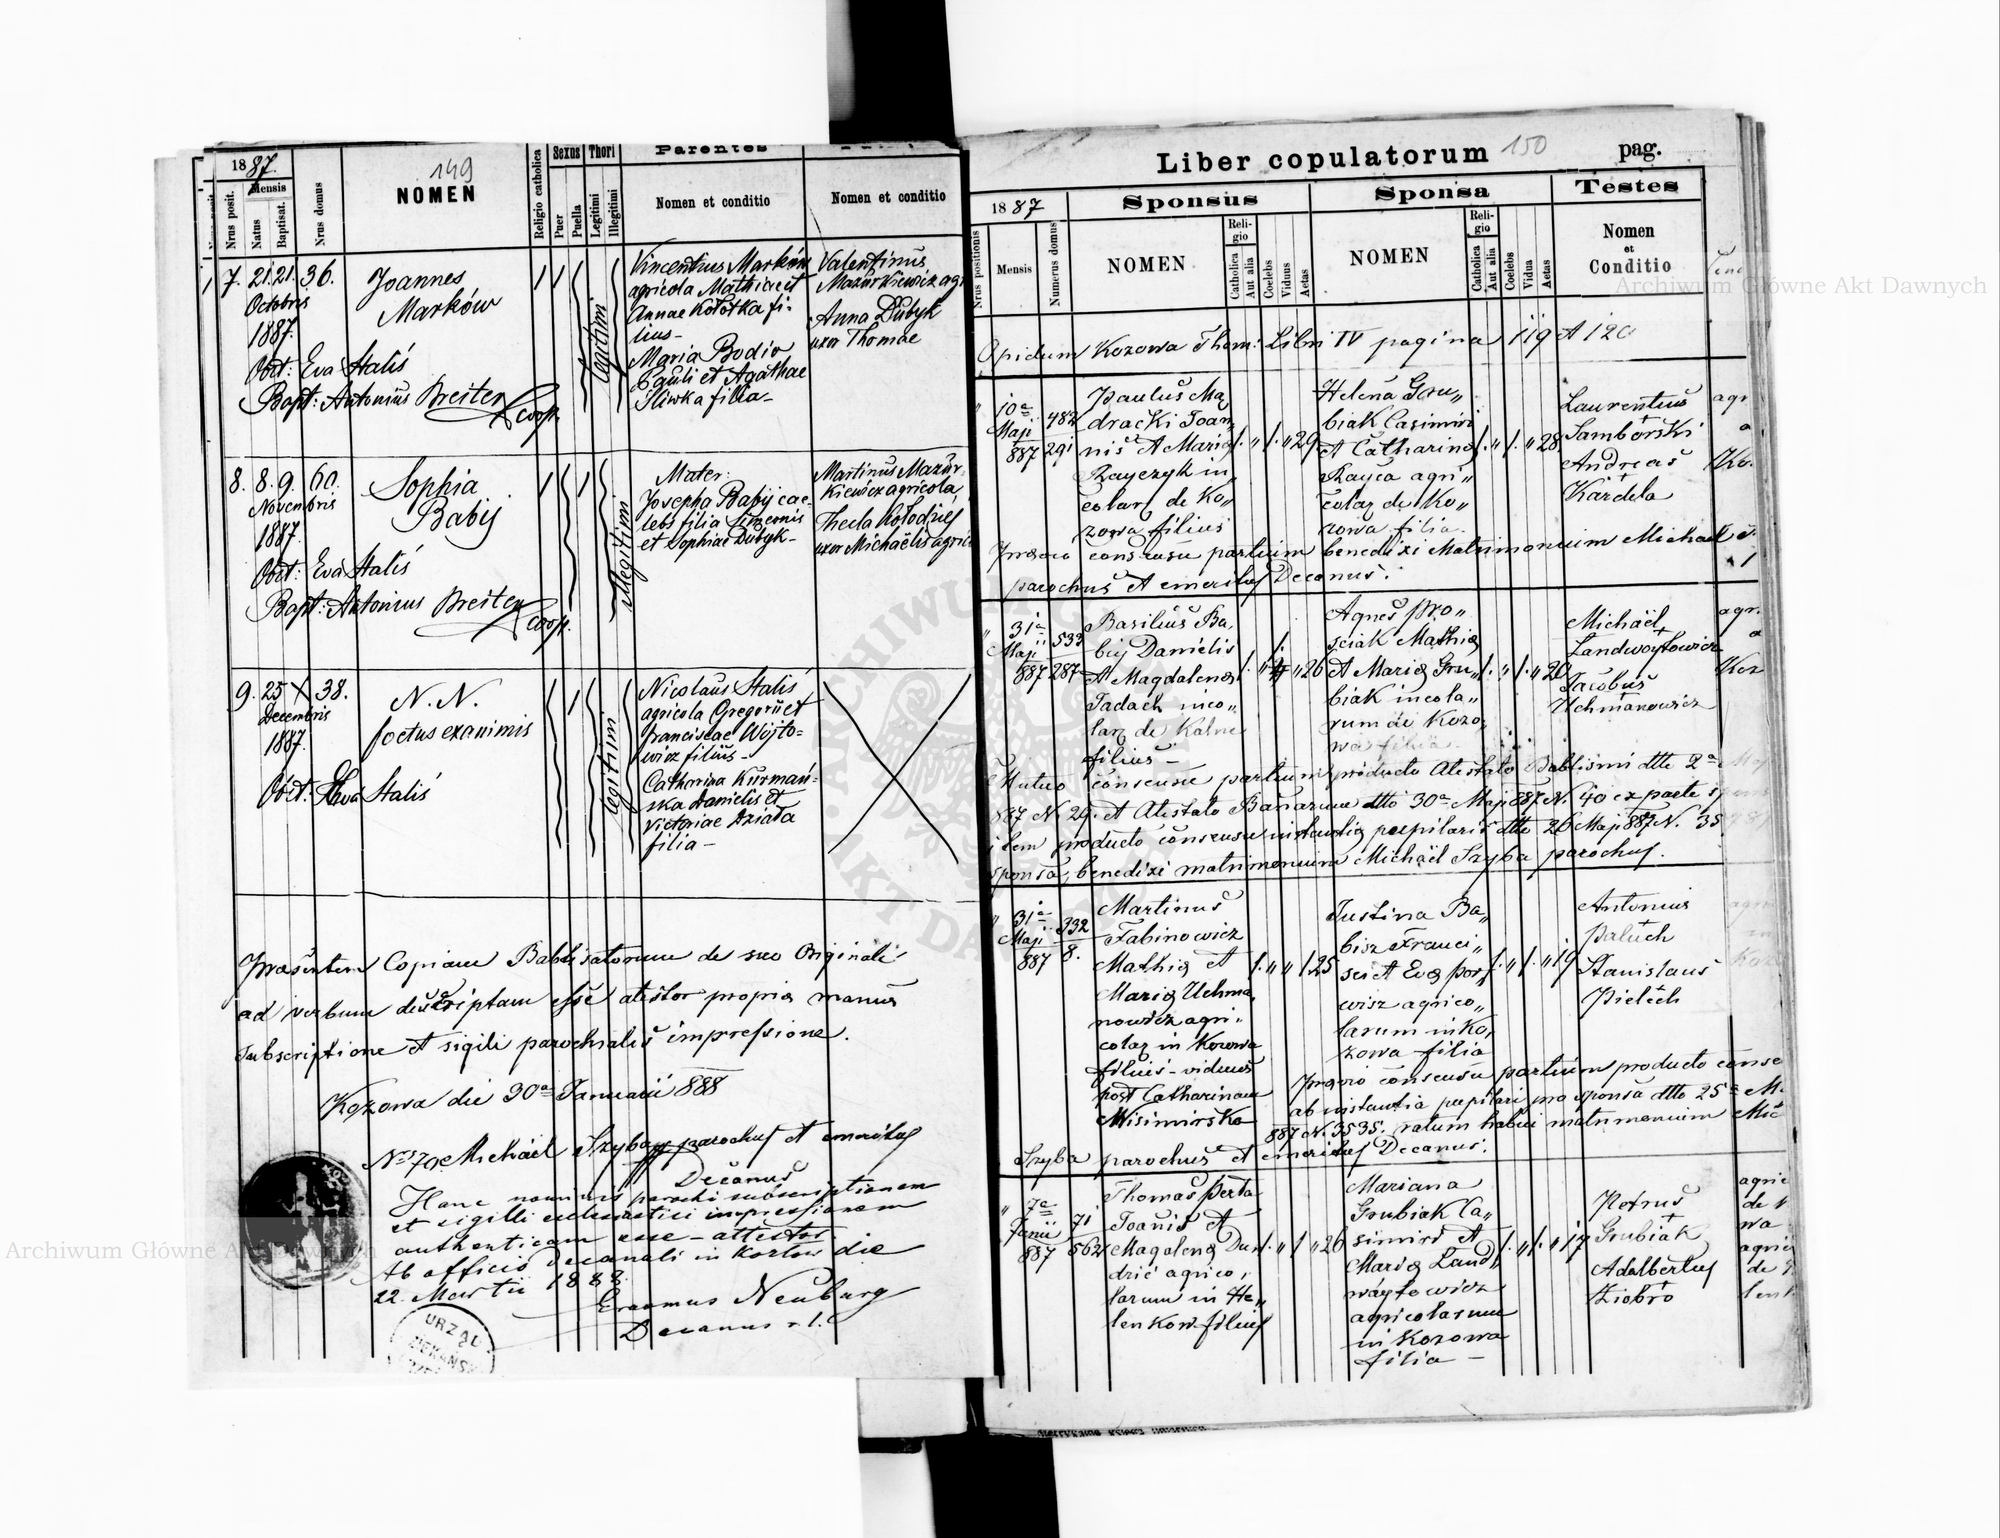 149
1887.
Nrus posit.
Mensis
Natus
Baptisat.
Nrus domus
NOMEN
Religio catholica
Sexus
Puer
Puella
Thori
Legitimi
Illegitimi
Parentes
Nomen et conditio
Nomen et conditio
7. 21. 21. 36.
Octobris
1887.
Joannes
Marków
Obst: Eva Staliś
Bapt: Antonius Breiter
Coop.
legitimi
Vincentius Marków
agricola Mathiae et
Annae Kołotka fi-
lius-
Maria Bodio
Pauli et Agathae
Sliwka filia-
Valentinus
Mazurkiewicz agr
Anna Dubyk
uxor Thomae
8. 8. 9. 60.
Novembris
1887.
Sophia
Babij
Obst: Eva Staliś
Bapt: Antonius Breiter
Coop.
Illegitimi
Mater:
Josepha Babij cae-
lebs filia Simeonis
et Sophiae Dubyk-
Martinus Mazur-
kiewicz agricola,
Thecla Kołodziej
uxor Michaëlis agric
9. 25 X 38.
Decembris
1887.
N. N.
foetus exanimis
Obst: Eva Staliś
legitimi
Nicolaus Staliś
agricola Gregorii et
Franciscae Wojto-
wicz filius-
Catharina Kurmań-
ska Danielis et
Victoriae Dziada
filia-
Praesentem Copiam Babtisatorum de suo Originali
ad verbum descriptam esse atestor propria manus
subscriptione et sigili parochialis impressione.
Kozowa die 30a Januarii 888
No 70 Michäel Szyba parochus et emeritus
Decanus
Hanc nominis parochi subscriptionem
et sigilli ecclesiastici impressionem
authenticam esse - attestor
Ab officio Decanali in Kozłow die
22. Martii 1888.
Erasmus Neuburg
Decanus r. l.
URZĄD
DZIEKAŃSK
Liber copulatorum 150 pag.
1887
Sponsus
Sponsa
Testes
Nrus positionis
Mensis
Numerus domus
NOMEN
Reli-
gio
Catholica
Aut alia
Coelebs
Viduus
Aetas
NOMEN
Reli-
gio
Catholica
Aut alia
Coelebs
Vidua
Aetas
Nomen
et
Conditio
Opidum Kozowa Thom: Libri IV pagina 119 et 120
10a
Maji
887
482
291
Paulus Ma
dracki Joan„
nis et Maria
Rayczyk in„
colar. de Ko„
zowa filius
29.
Helena Gru„
biak Casimiri
et Catharina
Rayca agri„
colar. de Ko„
zowa filia.
28.
Laurentius
+
Samborski
Andreas
+
Kardela
agr
Ko.
Praevio consensu partium benedixi Matrimonium Michael
parochus et emeritus Decanus.
31a
Maji
887
533
287
Basilius Ba„
bij Danielis
et Magdalena
Tadach inco„
lar. de Kalne
filius-
26
Agnes Pro„
sciak Mathia
et Maria Gru„
biak incola„
rum de Kozo„
wa filia-
20
Michäel
+
Landwoytowicz
Jacobus
+
Uchmanowicz
agr.
Koz
Mutuo consensu partium producto Atestato Babtismi dtto 2a
887 N. 29. et Atestato Banarum dtto 30a Maji 887 N. 40 ex parte
item producto consensu instantia pupilaris dtto 26 Maji 887 N. 35
sponsa, benedixi matrimonium Michäel Szyba parochus.
31a
Maji
887
332
8.
Martinus
Fabinowicz
Mathia et
Maria Uchma„
nowicz agri„
colar in Kozowa
filius-viduus
post Catharinam
Misimirska
25
Justina Ba„
bisz Franci„
sci et Eva
wisz agrico„
larum in Ko„
zowa filia
19
Antonius
+
Paluch
Stanislaus
+
Pielech
Praevio consensu partium producto conse
ab instantia pupilari pro sponsa dtto 25a M
887 N. 3535. ratum habui matrimonium Mic
Szyba parochus et emeritus Decanus.
7a
Junii
887
71
562
Thomas Perta
Joanis et
Magdalena Du„
drić agrico„
larum in He„
lenkow. filius
26
Mariana
Grubiak Ca„
simiri et
Maria Land„
waytowicz
agricolarum
in Kozowa
filia -
17
Petrus
+
Grubiak
Adalbertus
+
Ziobro
agric
de
wa
agric
de
lenk
Archiwum Główne Akt Dawnych
Archiwum Główne Akt Dawnych
ARCHIWUM GŁÓWNE AKT DAWNYCH